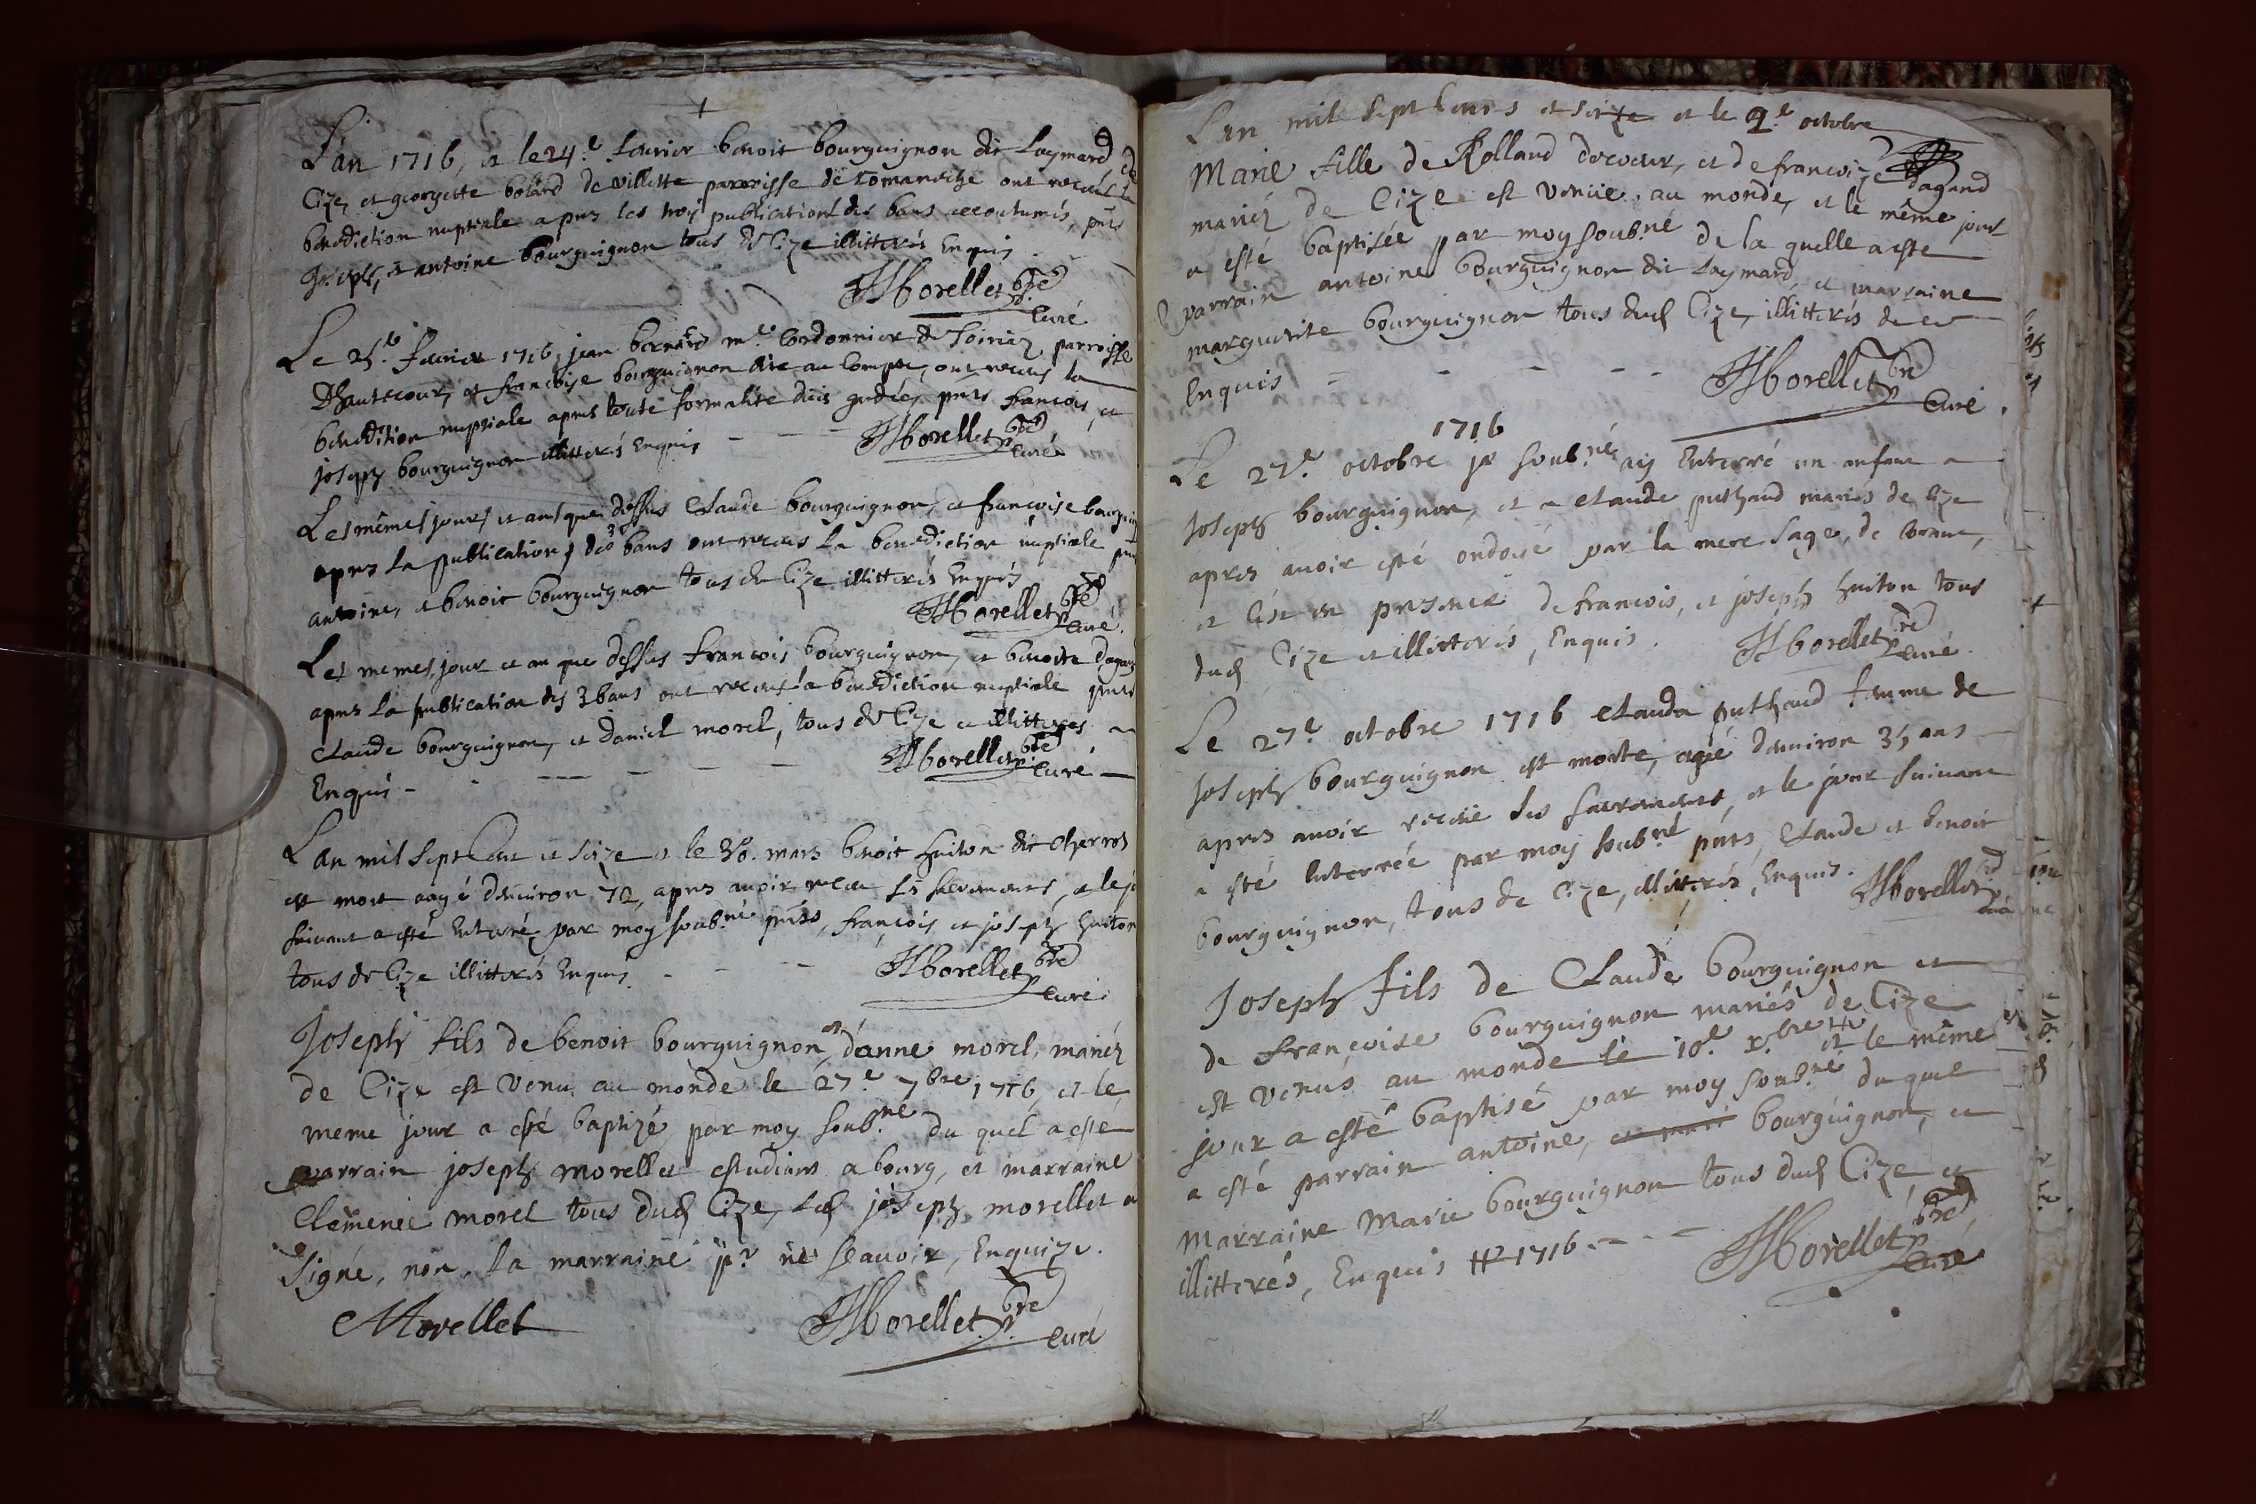 L'an 1716, et le 24.e feurier benoit bourguignon dit Laymard de
Cize, et georgette bolard de villette parroisse de Romaneche ont recus la
benediction nuptiale apres les trois publications des bans accoutumés, pnts
Joseph, et antoine bourguignon tous de Cize illitterés Enquis
Morellet pbre
Curé
Le 25.e feurier 1716, jean bernard m.e Cordonnier de parroisse
D'hautecour, et francoise bourguignon dite au Compte, ont recus la
benediction nuptiale apres toute formalité pnts francois, et
joseph bourguignon illitterés Enquis
Morellet pbre
Curé
Les mêmes jours et ans que dessus Claude bourguignon, et francoise bourguig
apres la publication des 3 bans ont recus la benediction nuptiale pnts
antoine, et benoit bourguignon tous de Cize illitterés Enquis
Morellet pbre
Curé
Les memes jour et an que dessus francois bourguignon, et benoite dagand
apres la publication des 3 bans ont recus la benediction nuptiale pnts
Claude bourguignon, et daniel morel, tous de Cize et illitteres
Enquis
Morellet pbre
Curé
L'an mil sept Cent et seize et le 30. mars benoit huiton dit
est mort aagé denuiron 72, apres auoir recu les sacrements, et le jo
suiuant a esté Enterré par moy soub.né pnts, francois et joseph huiton
tous de Cize illitterés Enquis
Morellet pbre
Curé
Joseph fils de benoit bourguignon et d'anne morel, mariéz
de Cize est Venu au monde le 27.e 7bre 1716, et le
meme jour a esté baptizé par moy soub.né du quel a esté
parrain joseph morellet estudiant a bourg, et marraine
Clemence morel tous dud Cize, led joseph morellet a
signé, non la marraine p.r ne scauoir, Enquize.
Morellet
Morellet pbre
Curé
L'an mil sept Cents et seize et le 2.e octobre
Marie fille de Rolland decoeur, et de francoize dagand
mariéz de Cize est Venue au monde, et le même jour
a esté baptisée par moy soub.né de la quelle a esté
parrain antoine bourguignon dit Laymard, et marraine
marguerite bourguignon tous dud Cize, illitterés de ce
Enquis
Morellet pbre
Curé
1716
Le 27.e octobre je soub.né ay Enterré un enfant a
Joseph bourguignon, et a Claude puthaud mariés de Cize
apres auoir esté ondoié par la mere sage, de
et en presence de francois, et joseph huiton tous
dud Cize et illitterés, Enquis.
Morellet pbre
Curé
Le 27.e octobre 1716 Clauda puthaud femme de
Joseph bourguignon est morte, agée denuiron 35 ans
apres auoir receue les sacrements, et le jour suiuant
a esté Enterrée par moy soub.né pnts, Claude et benoit
bourguignon, tous de Cize, illitterés, Enquis.
Morellet pbre
Curé
Joseph fils de Claude bourguignon et
de Françoise bourguignon mariés de Cize
est Venus au monde le 10.e x.bre # et le même
jour a esté baptisé par moy soub.né duquel
a esté parrain antoine, bourguignon, et
marraine Marie bourguignon tous dud Cize, et
illitterés, Enquis # 1716
Morellet pbre
Curé